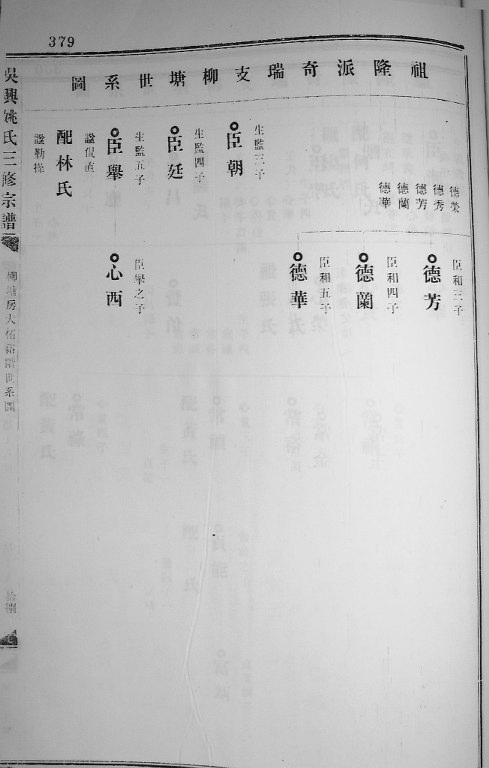 379
祖隆派奇瑞支柳塘世系圖
德榮
德秀
德芳
德蘭
德華
生監三子
臣朝
生監四子
臣廷
生監五子
臣舉
諡侃直
配林氏
諡勤操
臣和三子
德芳
臣和四子
德蘭
臣和五子
德華
臣舉之子
心西
吳興姚氏三修宗譜
世系圖